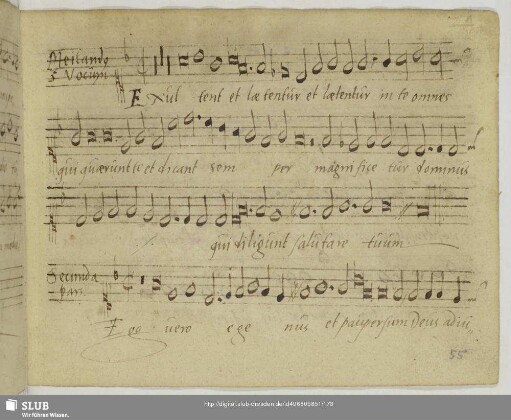 Neilandt
5 Vocum
Exul tent et læ tentur et lætentur in te omnes
qui quærunt te et dicant sem per magnifice tur dominus
qui diligunt salutare tuum
Secunda
pars
Ego vero ege nus et pauper sum Deus adiu
55
SLUB
Wir führen Wissen.